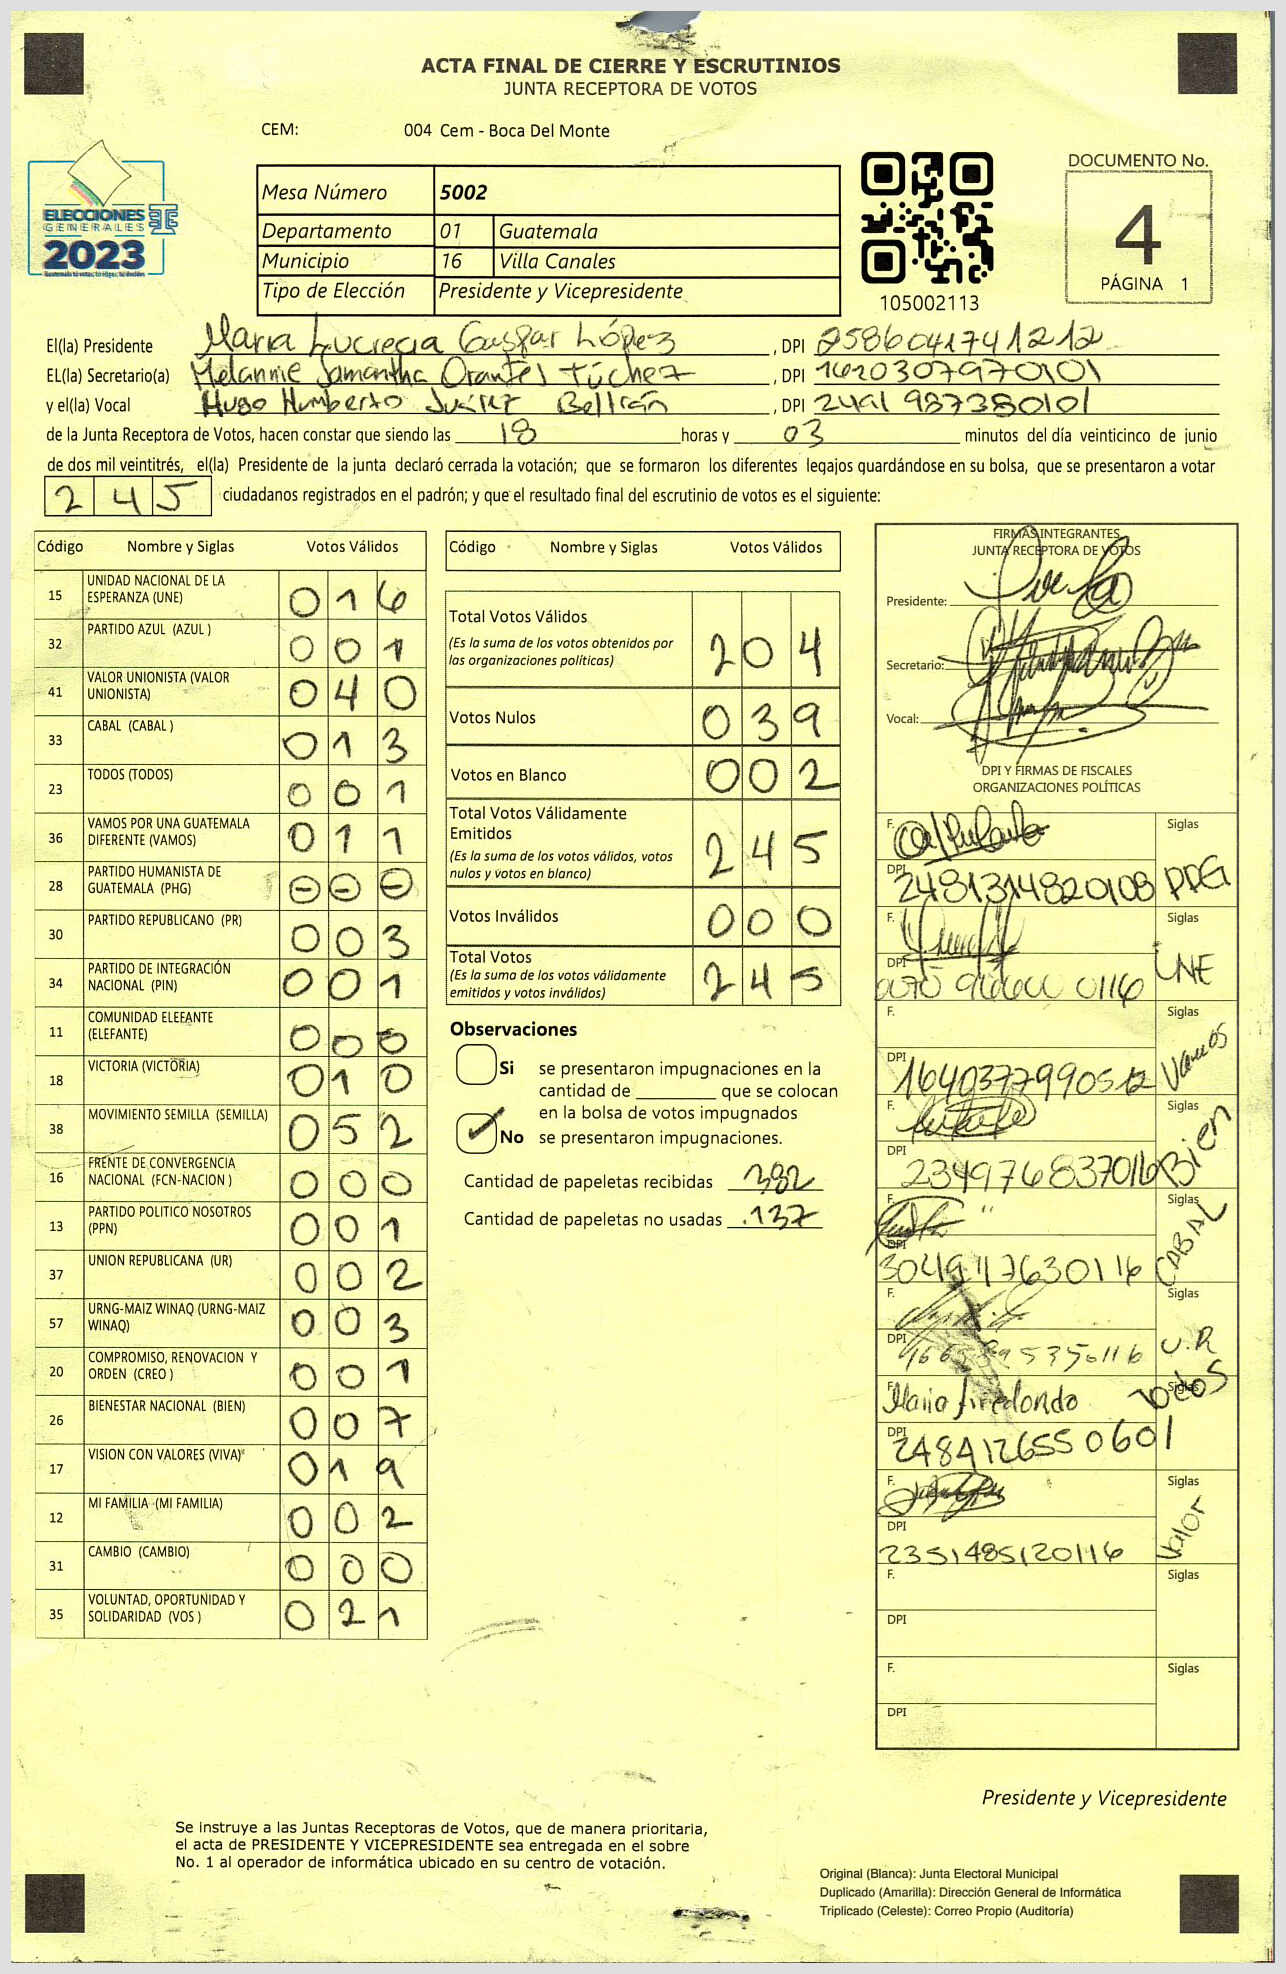 ACTA FINAL DE CIERRE Y ESCRUTINIOS
JUNTA RECEPTORA DE VOTOS
CEM: 004 Cem - Boca Del Monte
ELECCIONES
GENERALES
2023
Mesa Número 5002
Departamento 01 Guatemala
Municipio 16 Villa Canales
Tipo de Elección Presidente y Vicepresidente
105002113
DOCUMENTO No.
4
PÁGINA 1
El(la) Presidente Maria Lucrecia Gaspar López, DPI 2586041741212
EL(la) Secretario(a) Melannie Samantha Orantes Túchez, DPI 1620307970101
y el(la) Vocal Hugo Humberto Juárez Beltrán, DPI 2491987380101
de la Junta Receptora de Votos, hacen constar que siendo las 18 horas y 03 minutos del día veinticinco de junio
de dos mil veintitrés, el(la) Presidente de la junta declaró cerrada la votación; que se formaron los diferentes legajos guardándose en su bolsa, que se presentaron a votar
245 ciudadanos registrados en el padrón; y que el resultado final del escrutinio de votos es el siguiente:
Código Nombre y Siglas Votos Válidos
15 UNIDAD NACIONAL DE LA ESPERANZA (UNE) 016
32 PARTIDO AZUL (AZUL ) 001
41 VALOR UNIONISTA (VALOR UNIONISTA) 040
33 CABAL (CABAL ) 013
23 TODOS (TODOS) 001
36 VAMOS POR UNA GUATEMALA DIFERENTE (VAMOS) 011
28 PARTIDO HUMANISTA DE GUATEMALA (PHG) 000
30 PARTIDO REPUBLICANO (PR) 003
34 PARTIDO DE INTEGRACIÓN NACIONAL (PIN) 001
11 COMUNIDAD ELEFANTE (ELEFANTE) 000
18 VICTORIA (VICTORIA) 010
38 MOVIMIENTO SEMILLA (SEMILLA) 052
16 FRENTE DE CONVERGENCIA NACIONAL (FCN-NACION ) 000
13 PARTIDO POLITICO NOSOTROS (PPN) 001
37 UNION REPUBLICANA (UR) 002
57 URNG-MAIZ WINAQ (URNG-MAIZ WINAQ) 003
20 COMPROMISO, RENOVACION Y ORDEN (CREO ) 001
26 BIENESTAR NACIONAL (BIEN) 007
17 VISION CON VALORES (VIVA) 019
12 MI FAMILIA (MI FAMILIA) 002
31 CAMBIO (CAMBIO) 000
35 VOLUNTAD, OPORTUNIDAD Y SOLIDARIDAD (VOS ) 021
Código Nombre y Siglas Votos Válidos
Total Votos Válidos 204
(Es la suma de los votos obtenidos por las organizaciones políticas)
Votos Nulos 039
Votos en Blanco 002
Total Votos Válidamente Emitidos 245
(Es la suma de los votos válidos, votos nulos y votos en blanco)
Votos Inválidos 000
Total Votos 245
(Es la suma de los votos válidamente emitidos y votos inválidos)
Observaciones
Si se presentaron impugnaciones en la
cantidad de ________ que se colocan
en la bolsa de votos impugnados
No se presentaron impugnaciones.
Cantidad de papeletas recibidas 382
Cantidad de papeletas no usadas 137
FIRMAS INTEGRANTES
JUNTA RECEPTORA DE VOTOS
Presidente:
Secretario:
Vocal:
DPI Y FIRMAS DE FISCALES
ORGANIZACIONES POLÍTICAS
F. Siglas
DPI 2481314820108
F. Siglas UNE
DPI
F. Siglas Vamos
DPI 1640377990512
F. Siglas Bien
DPI 2349768370116
F. Siglas CABAL
DPI 3049117630116
F. Siglas U.R
DPI
F. Siglas Todos
DPI 2484126550601
F. Siglas Valor
DPI 2351485120116
F. Siglas
DPI
F. Siglas
DPI
Presidente y Vicepresidente
Se instruye a las Juntas Receptoras de Votos, que de manera prioritaria,
el acta de PRESIDENTE Y VICEPRESIDENTE sea entregada en el sobre
No. 1 al operador de informática ubicado en su centro de votación.
Original (Blanca): Junta Electoral Municipal
Duplicado (Amarilla): Dirección General de Informática
Triplicado (Celeste): Correo Propio (Auditoría)